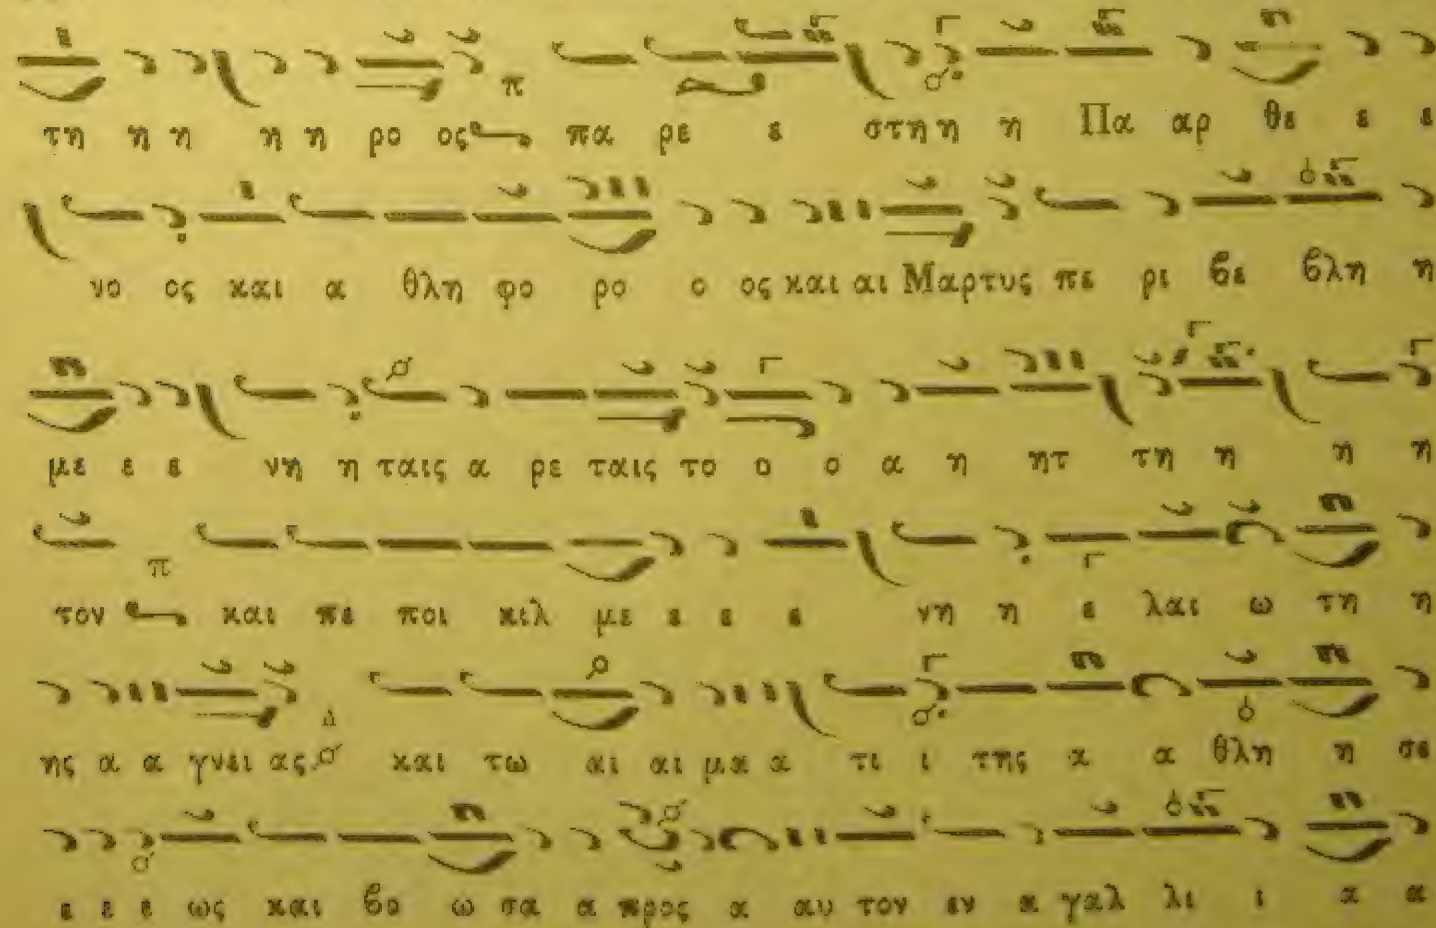 τη η η η η ρο ος πα ρε ε στη η η Πα αρ θε ε ε
νο ος και α θλη φο ρο ο ος και αι Μαρτυς πε ρι βε βλη η
με ε ε νη η ταις α ρε ταις το ο ο α η ητ τη η η η
τον και πε ποι κιλ με ε ε ε νη η ε λαι ω τη η
ης α α γνει ας και τω αι αι μα α τι ι της α α θλη η σε
ε ε ε ως και βο ω σα α προς α αυ τον εν α γαλ λι ι α α